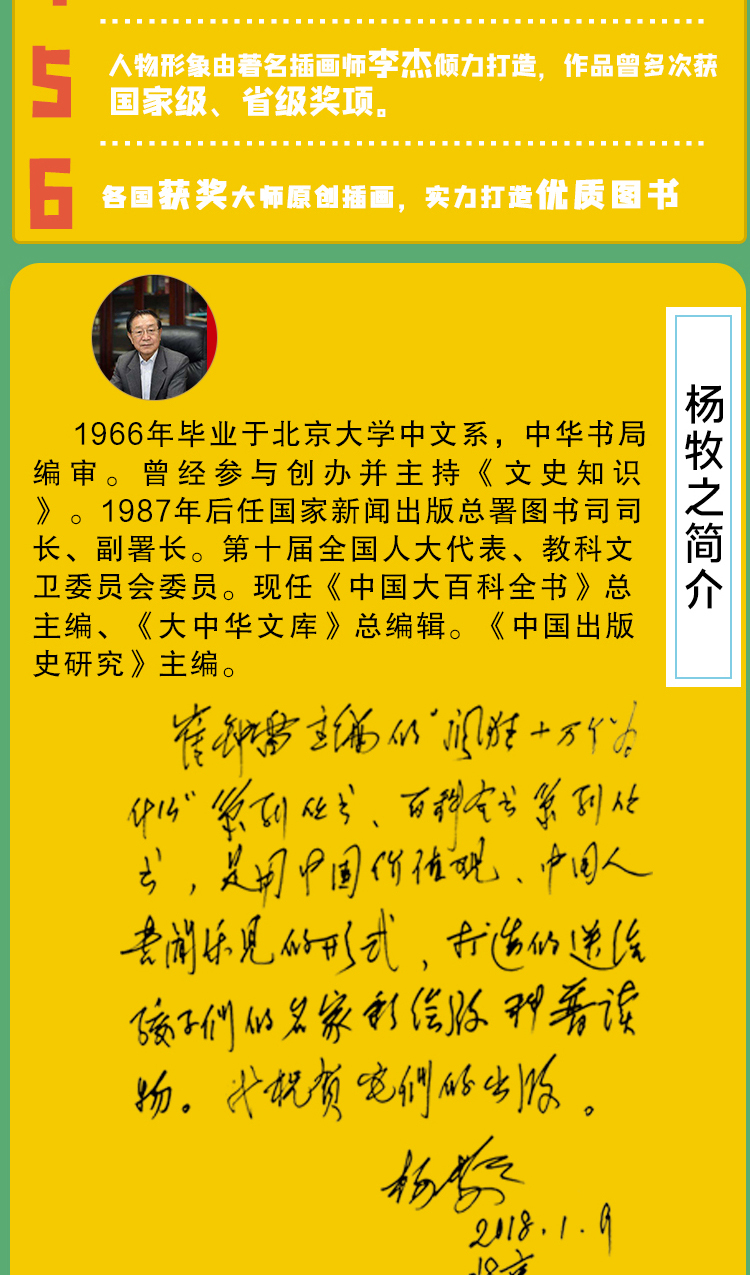 5
人物形象由著名插画师李杰倾力打造，作品曾多次获
国家级、省级奖项。
6
各国获奖大师原创插画，实力打造优质图书
杨牧之简介
1966年毕业于北京大学中文系，中华书局
编审。曾经参与创办并主持《文史知识
》。1987年后任国家新闻出版总署图书司司
长、副署长。第十届全国人大代表、教科文
卫委员会委员。现任《中国大百科全书》总
主编、《大中华文库》总编辑。《中国出版
史研究》主编。
崔钟雷主编的“问鼎十万个为
什么”系列丛书、百科全书系列丛
书，是用中国价值观、中国人
喜闻乐见的形式，打造的送给
孩子們的名家彩绘版科普读
物。我祝贺它們的出版。
杨牧之
2018.1.9